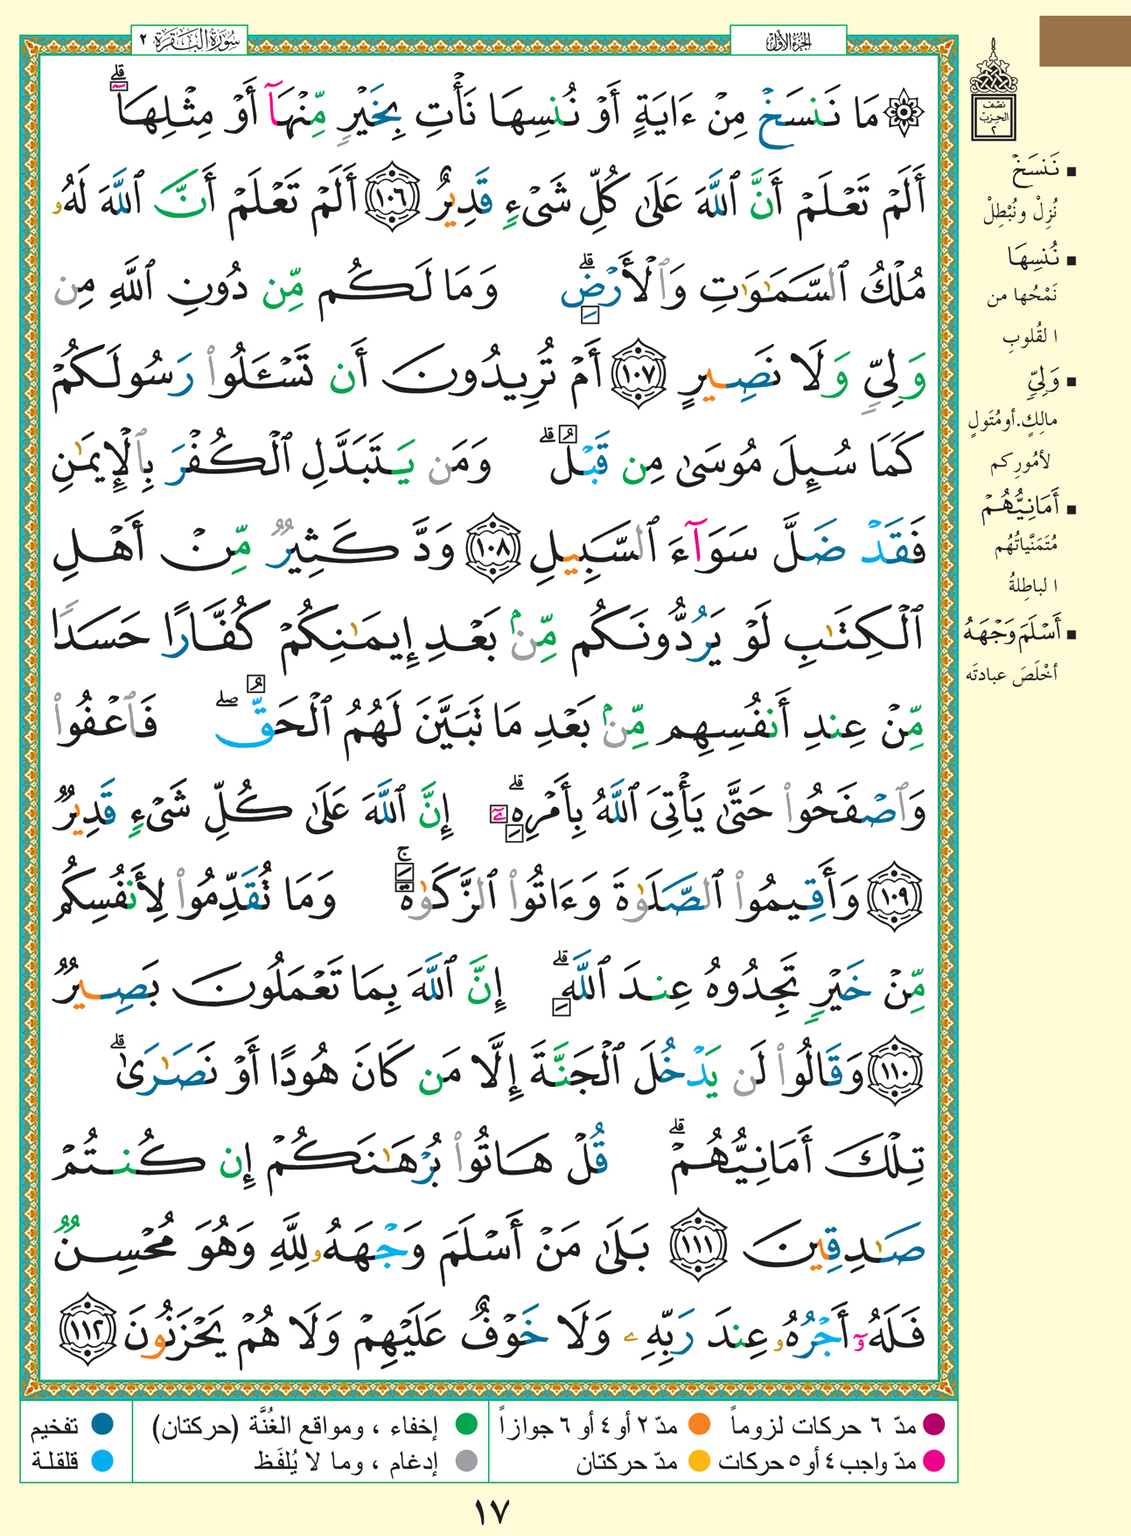 سُورَةُ البَقَرَة ٢
الجُزءُ الأوّلُ
۞ مَا نَنسَخۡ مِنۡ ءَايَةٍ أَوۡ نُنسِهَا نَأۡتِ بِخَيۡرٖ مِّنۡهَآ أَوۡ مِثۡلِهَآۗ
أَلَمۡ تَعۡلَمۡ أَنَّ ٱللَّهَ عَلَىٰ كُلِّ شَيۡءٖ قَدِيرٌ ١٠٦ أَلَمۡ تَعۡلَمۡ أَنَّ ٱللَّهَ لَهُۥ
مُلۡكُ ٱلسَّمَٰوَٰتِ وَٱلۡأَرۡضِۗ وَمَا لَكُم مِّن دُونِ ٱللَّهِ مِن
وَلِيّٖ وَلَا نَصِيرٍ ١٠٧ أَمۡ تُرِيدُونَ أَن تَسۡـَٔلُواْ رَسُولَكُمۡ
كَمَا سُئِلَ مُوسَىٰ مِن قَبۡلُۗ وَمَن يَتَبَدَّلِ ٱلۡكُفۡرَ بِٱلۡإِيمَٰنِ
فَقَدۡ ضَلَّ سَوَآءَ ٱلسَّبِيلِ ١٠٨ وَدَّ كَثِيرٞ مِّنۡ أَهۡلِ
ٱلۡكِتَٰبِ لَوۡ يَرُدُّونَكُم مِّنۢ بَعۡدِ إِيمَٰنِكُمۡ كُفَّارًا حَسَدٗا
مِّنۡ عِندِ أَنفُسِهِم مِّنۢ بَعۡدِ مَا تَبَيَّنَ لَهُمُ ٱلۡحَقُّۖ فَٱعۡفُواْ
وَٱصۡفَحُواْ حَتَّىٰ يَأۡتِيَ ٱللَّهُ بِأَمۡرِهِۦٓۗ إِنَّ ٱللَّهَ عَلَىٰ كُلِّ شَيۡءٖ قَدِيرٞ
١٠٩ وَأَقِيمُواْ ٱلصَّلَوٰةَ وَءَاتُواْ ٱلزَّكَوٰةَۚ وَمَا تُقَدِّمُواْ لِأَنفُسِكُم
مِّنۡ خَيۡرٖ تَجِدُوهُ عِندَ ٱللَّهِۗ إِنَّ ٱللَّهَ بِمَا تَعۡمَلُونَ بَصِيرٞ
١١٠ وَقَالُواْ لَن يَدۡخُلَ ٱلۡجَنَّةَ إِلَّا مَن كَانَ هُودًا أَوۡ نَصَٰرَىٰۗ
تِلۡكَ أَمَانِيُّهُمۡۗ قُلۡ هَاتُواْ بُرۡهَٰنَكُمۡ إِن كُنتُمۡ
صَٰدِقِينَ ١١١ بَلَىٰ مَنۡ أَسۡلَمَ وَجۡهَهُۥ لِلَّهِ وَهُوَ مُحۡسِنٞ
فَلَهُۥٓ أَجۡرُهُۥ عِندَ رَبِّهِۦ وَلَا خَوۡفٌ عَلَيۡهِمۡ وَلَا هُمۡ يَحۡزَنُونَ ١١٢
نصف
الحزب
٢
▪ نَنسَخۡ
نُزِلْ ونُبْطِلْ
▪ نُنسِهَا
نَمْحُها من
القُلوبِ
▪ وَلِيّٖ
مالِكٍ.أومُتَولٍ
لأمُورِكم
▪ أَمَانِيُّهُمۡ
مُتَمَنَّياتُهُم
الباطِلةُ
▪ أَسۡلَمَ وَجۡهَهُ
أخْلَصَ عبادتَه
مدّ ٦ حركات لزوماً
مدّ ٢ أو ٤ أو ٦ جوازاً
إخفاء ، ومواقع الغُنَّة (حركتان)
تفخيم
مدّ واجب ٤ أو ٥ حركات
مدّ حركتان
إدغام ، وما لا يُلفَظ
قلقلة
١٧